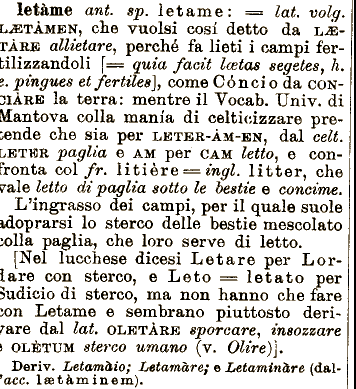 letàme ant. sp. letame: = lat. volg.
LÆTÀMEN, che vuolsi cosí detto da LÆ-
TÀRE allietare, perché fa lieti i campi fer-
tilizzandoli [= quia facit lætas segetes, h.
e. pingues et fertiles], come Cóncio da CON-
CIÀRE la terra: mentre il Vocab. Univ. di
Mantova colla manía di celticizzare pre-
tende che sia per LETER-ÀM-EN, dal celt.
LETER paglia e AM per CAM letto, e con-
fronta col fr. litière = ingl. litter, che
vale letto di paglia sotto le bestie e concime.
L'ingrasso dei campi, per il quale suole
adoprarsi lo sterco delle bestie mescolato
colla paglia, che loro serve di letto.
[Nel lucchese dicesi Letare per Lor-
dare con sterco, e Leto = letato per
Sudicio di sterco, ma non hanno che fare
con Letame e sembrano piuttosto deri-
vare dal lat. OLETÀRE sporcare, insozzare
e OLÈTUM sterco umano (v. Olire)].
Deriv. Letamàio; Letamàre; e Letaminàre (dal-
l'acc. lætàminem).